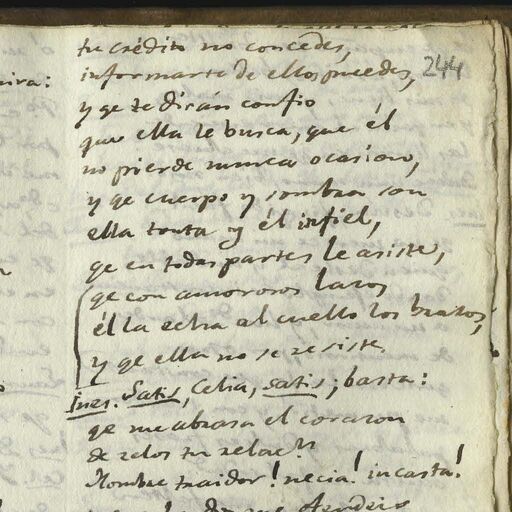 tu crédito no concedes,
informarte de ellos puedes,
244
y qe te dirán confio
que ella le busca, que él
no pierde nunca ocasion,
y qe cuerpo y sombra son
ella tonta y él infiel,
qe en todas partes le asiste,
qe con amorosos lazos
él la echa al cuello los brazos,
y qe ella no se resiste.
Ines. Satis, Celia, satis; basta:
qe me abrasa el corazon
de zelos tu relacn
Hombre traidor! necia! incasta!